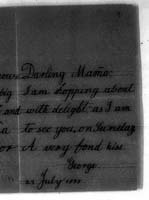 Darling Mama:
I am hopping about
and with delight, as I am
to see you, on Sunday
A very fond kiss
George
July